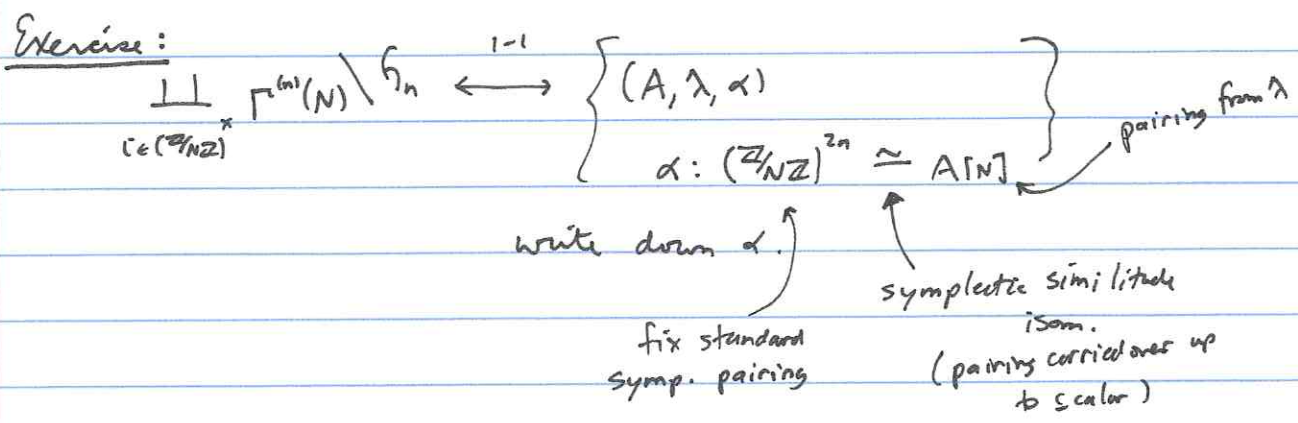 Exercise:
∐_{i∈(ℤ/Nℤ)^×} Γ^{(n)}(N)\𝔥_n ⟷^{1-1} { (A, λ, α)
α: (ℤ/Nℤ)^{2n} ≃ A[N] }
pairing from λ
write down α.
fix standard
symp. pairing
symplectic similitude
isom.
(pairing carried over up
to scalar)